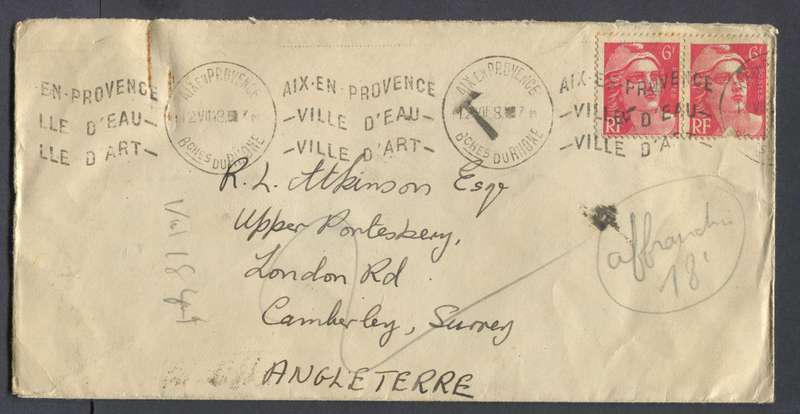 EN-PROVENCE
LLE D'EAU-
LLE D'ART-
AIX EN PROVENCE
BCHES DU RHONE
AIX-EN PROVENCE
-VILLE D'EAU-
-VILLE D'ART-
AIX EN PROVENCE
BCHES DU RHONE
T
AIX-EN PROVENCE
-VILLE D'EAU-
-VILLE D'ART-
6F
RF
6F
RF
R. L. Atkinson Esqr
Upper Portesbery,
London Rd
Camberley, Surrey
ANGLETERRE
affranchi
18f